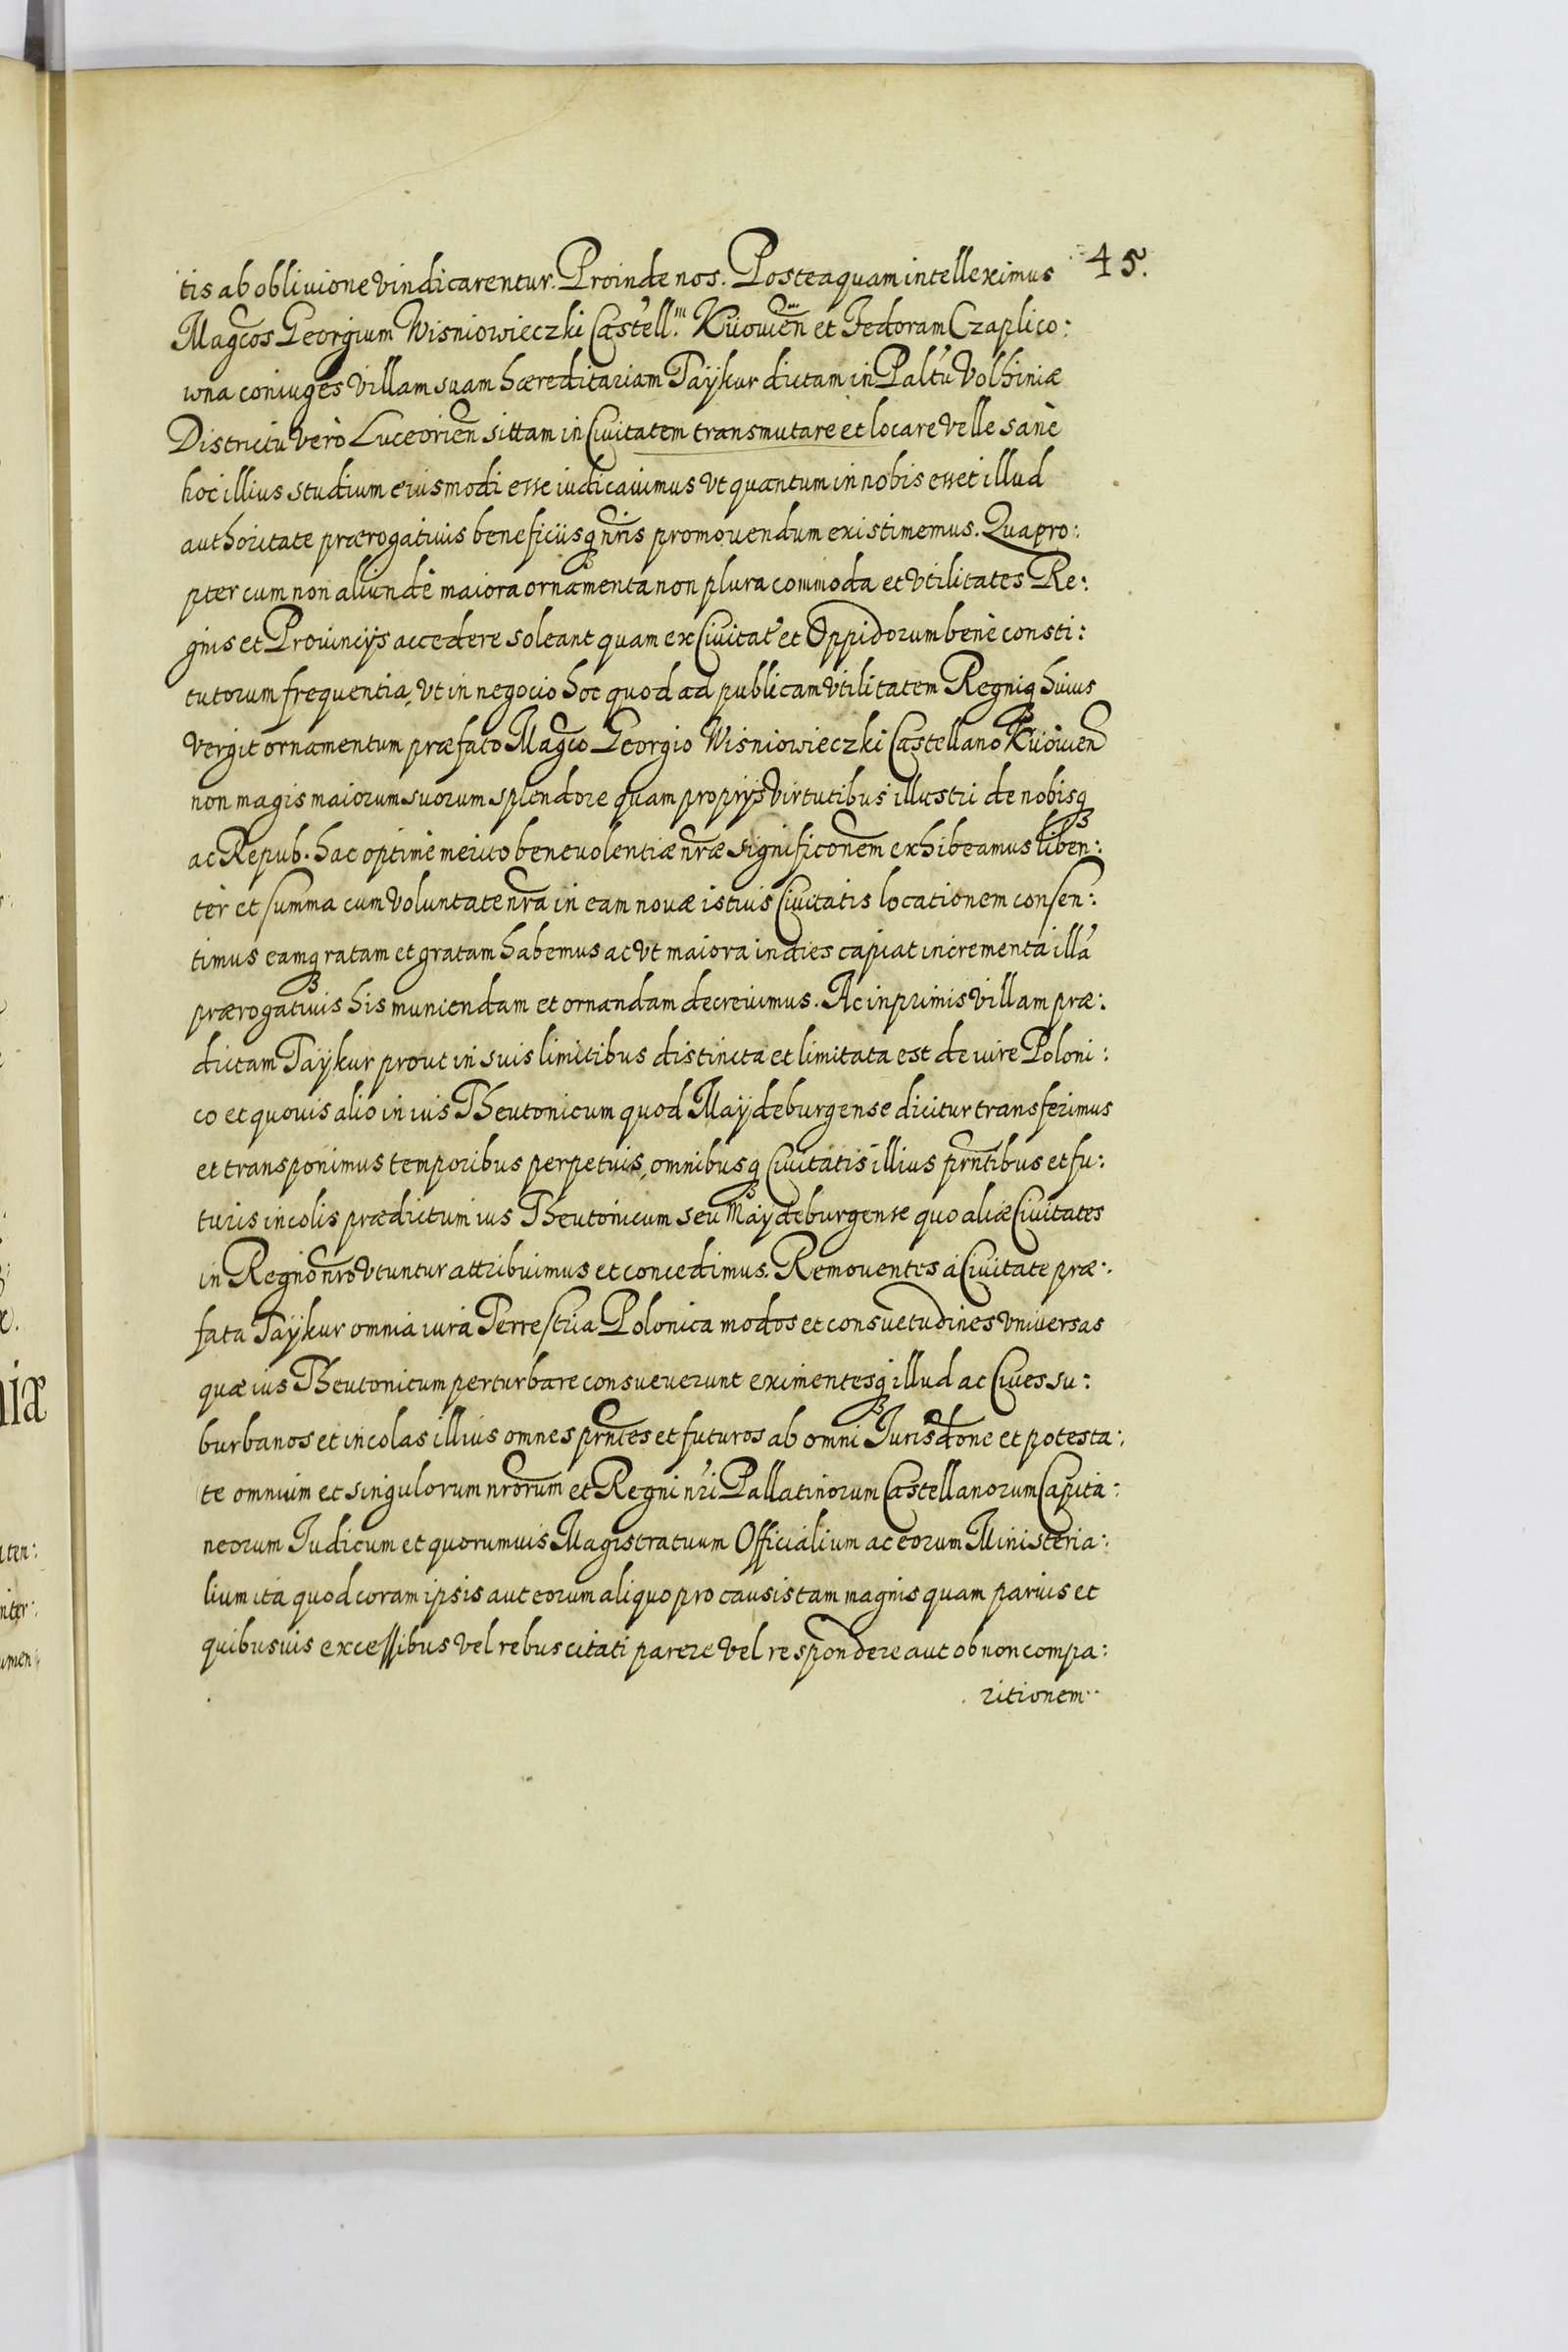 45.
tis ab obliuione vindicarentur. Proinde nos. Posteaquam intelleximus
Magcos Georgium Wisniowieczki Castell.m Kiiowien et Fedoram Czaplico:
wna coniuges villam suam hæreditariam Taÿkur dictam in Paltu Volhiniæ
Districtu verò Luceorien sittam in Ciuitatem transmutare et locare velle sanè
hoc illius studium eiusmodi esse iudicauimus vt quantum in nobis esset illud
authoritate prærogatiuis beneficiisq nris promouendum existimemus. Quapro:
pter cum non aliundè maiora ornamenta non plura commoda et vtilitates Re:
gnis et Prouincijs accedere soleant quam ex Ciuitat et Oppidorum benè consti:
tutorum frequentia, vt in negocio hoc quod ad publicam vtilitatem Regniq huius
vergit ornamentum præfato Magco Georgio Wisniowieczki Castellano Kiiowien
non magis maiorum suorum splendore quam proprijs virtutibus illustri de nobisq
ac Repub. hac optimè merito beneuolentiæ nræ significonem exhibeamus liben:
tèr et summa cum voluntate nra in eam nouæ istius Ciuitatis locationem consen:
timus eamq ratam et gratam habemus ac vt maiora in dies capiat incrementa illa
prærogatiuis his muniendam et ornandam decreuimus. Ac inprimis villam præ:
dictam Taÿkur prout in suis limitibus distincta et limitata est de iure Poloni:
co et quouis alio in ius Theutonicum quod Maÿdeburgense dicitur transferimus
et transponimus temporibus perpetuis, omnibusq Ciuitatis illius prntibus et fu:
turis incolis prædictum ius Theutonicum seu Maÿdeburgense quo aliæ Ciuitates
in Regno nro vtuntur attribuimus et concedimus. Remouentes à Ciuitate præ:
fata Taÿkur omnia iura Terrestria Polonica modos et consuetudines vniuersas
quæ ius Theutonicum perturbare consueuerunt eximentesq illud ac Ciues su:
burbanos et incolas illius omnes prntes et futuros ab omni Jurisdone et potesta:
te omnium et singulorum nrorum et Regni nri Pallatinorum Castellanorum Capita:
neorum Judicum et quorumuis Magistratuum Officialium ac eorum Ministeria:
lium ita quod coram ipsis aut eorum aliquo pro causis tam magnis quam paruis et
quibusuis excessibus vel rebus citati parere vel respondere aut ob non compa:
ritionem